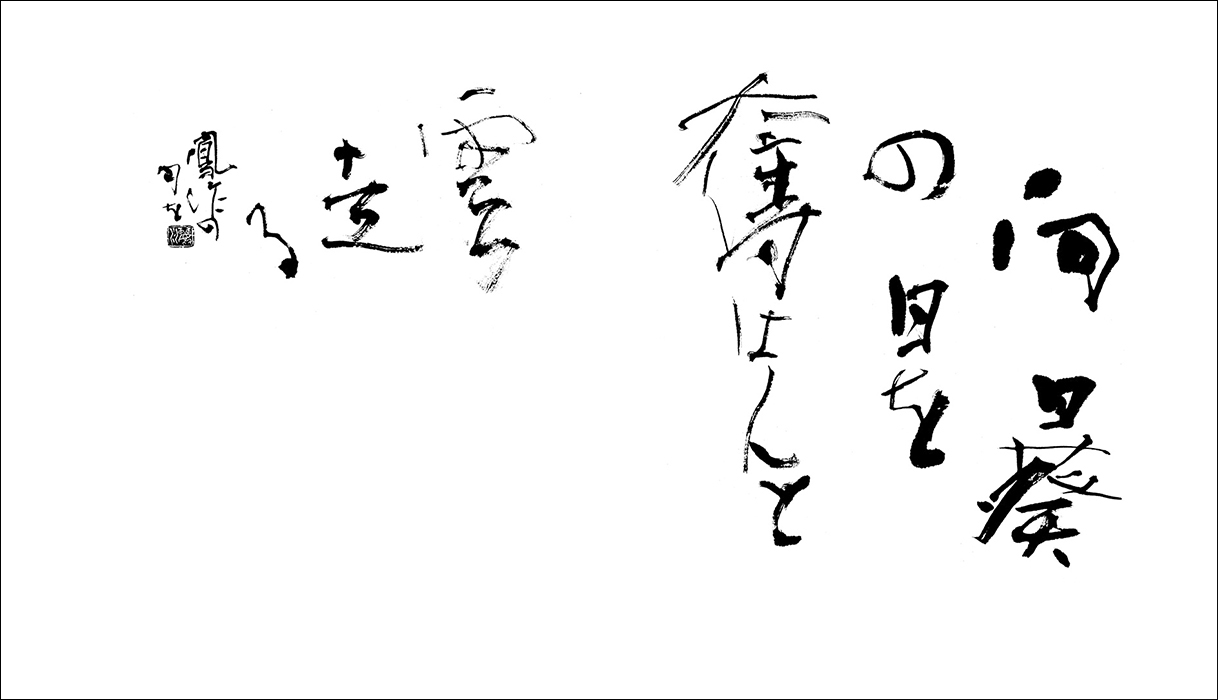 向日葵
の日を
奪はんと
雲走る
鳳作の
句を